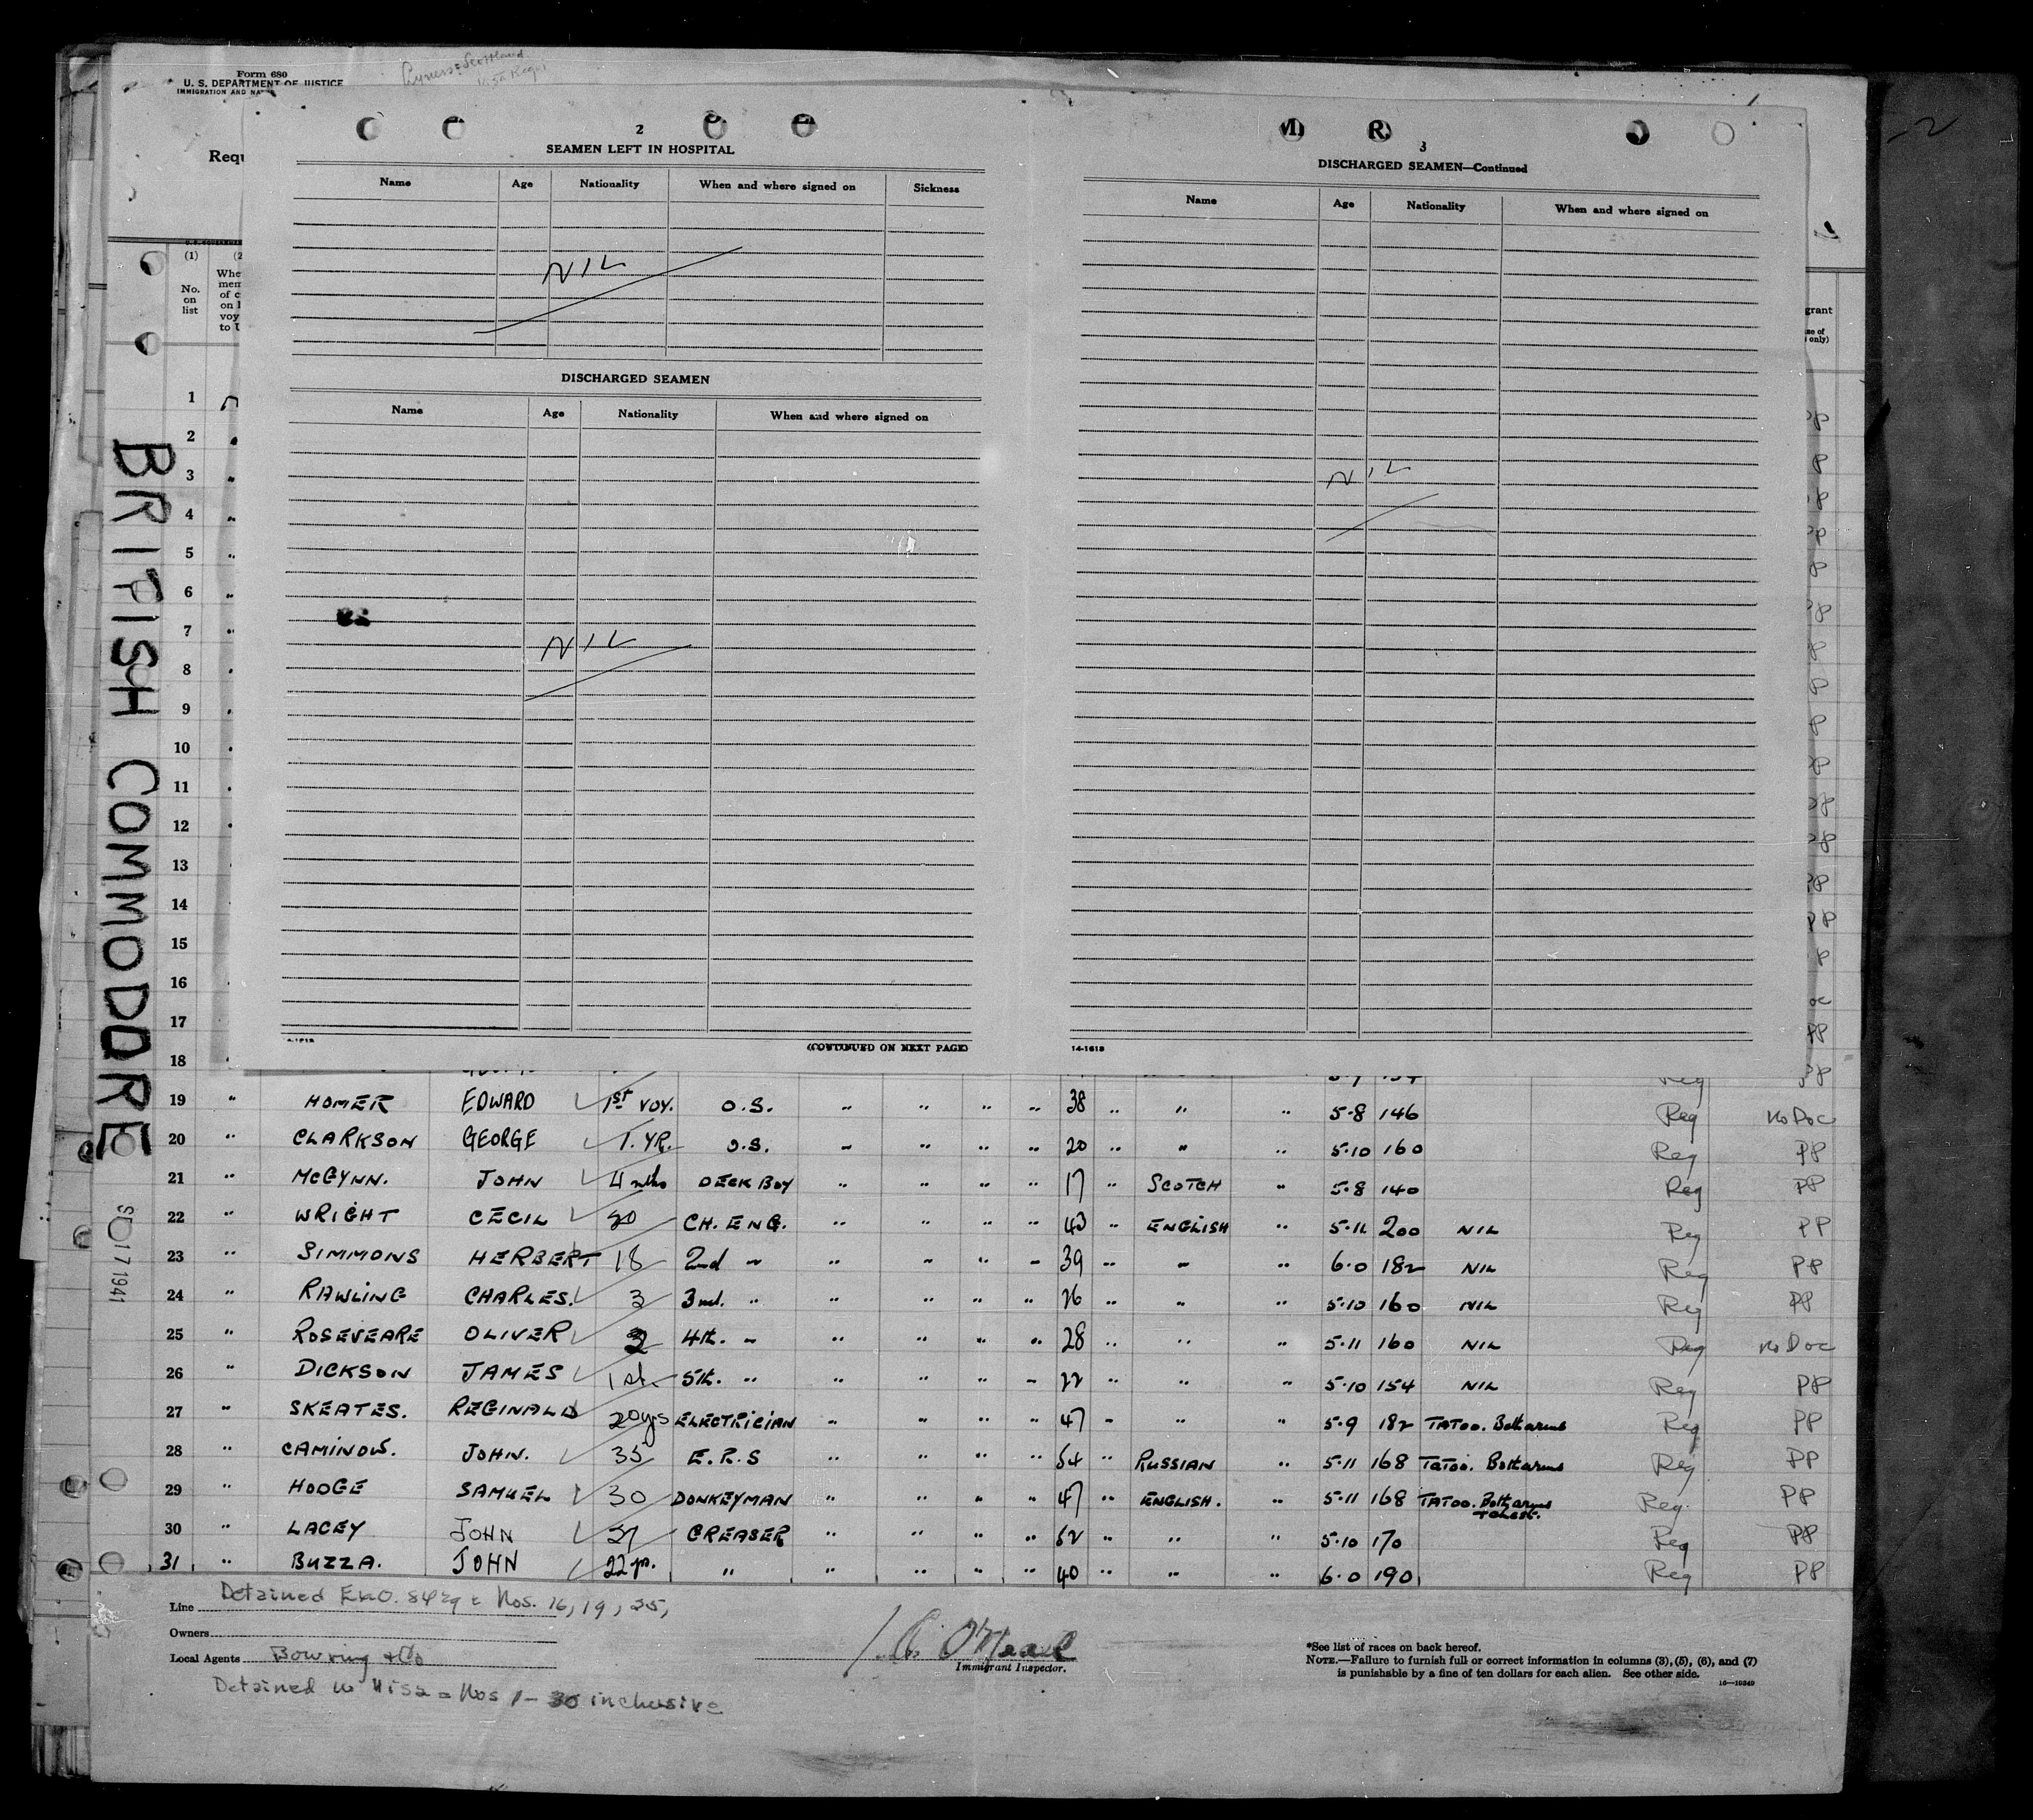 Form 680
U. S. DEPARTMENT OF JUSTICE
IMMIGRATION AND NA
Scotland
Requ
(1)
No.
on
list
(2
Whe
mem
of c
on l
voy
to U
BRITISH COMMODORE
SEP 17 1941
2
SEAMEN LEFT IN HOSPITAL
Name Age Nationality When and where signed on Sickness
NIL
DISCHARGED SEAMEN
Name Age Nationality When and where signed on
NIL
(CONTINUED ON NEXT PAGE)
M R
3
DISCHARGED SEAMEN—Continued
Name Age Nationality When and where signed on
NIL
14-1613
grant
only)
1
2
3
4
5
6
7
8
9
10
11
12
13
14
15
16
17
18
19 " HOMER EDWARD 1st VOY. O.S. " " " " 38 " " " 5-8 146 Reg No Doc
20 " CLARKSON GEORGE 1. YR. O.S. " " " " 20 " " " 5-10 160 Reg PP
21 " McGYNN. JOHN 4 mths DECK BOY " " " " 17 " SCOTCH " 5-8 140 Reg PP
22 " WRIGHT CECIL 20 CH. ENG. " " " " 43 " ENGLISH " 5-11 200 NIL Reg PP
23 " SIMMONS HERBERT 18 2nd " " " " " 39 " " " 6-0 182 NIL Reg PP
24 " RAWLING CHARLES. 3 3rd. " " " " " 26 " " " 5-10 160 NIL Reg PP
25 " ROSEVEARE OLIVER 2 4th. " " " " " 28 " " " 5-11 160 NIL Reg No Doc
26 " DICKSON JAMES 1st. 5th. " " " " " 22 " " " 5-10 154 NIL Reg PP
27 " SKEATES. REGINALD 20yrs ELECTRICIAN " " " " 47 " " " 5-9 182 TATOO. Both arms Reg PP
28 " CAMINOW. JOHN. 35 E.R.S " " " " 54 " RUSSIAN " 5-11 168 TATOO. Both arms Reg PP
29 " HODGE SAMUEL 30 DONKEYMAN " " " " 47 " ENGLISH. " 5-11 168 TATOO. Both arms + chest. Reg. PP
30 " LACEY JOHN 27 GREASER " " " " 52 " " " 5-10 170 Reg PP
31 " BUZZA. JOHN 22 yr. " " " " " 40 " " " 6-0 190 Reg PP
Line Detained Nos. 16, 19, 25,
Owners
Local Agents Bowring & Co
Detained no Visa = Nos 1 - 30 inclusive
Immigrant Inspector.
*See list of races on back hereof.
NOTE.—Failure to furnish full or correct information in columns (3), (5), (6), and (7)
is punishable by a fine of ten dollars for each alien. See other side.
16—19349